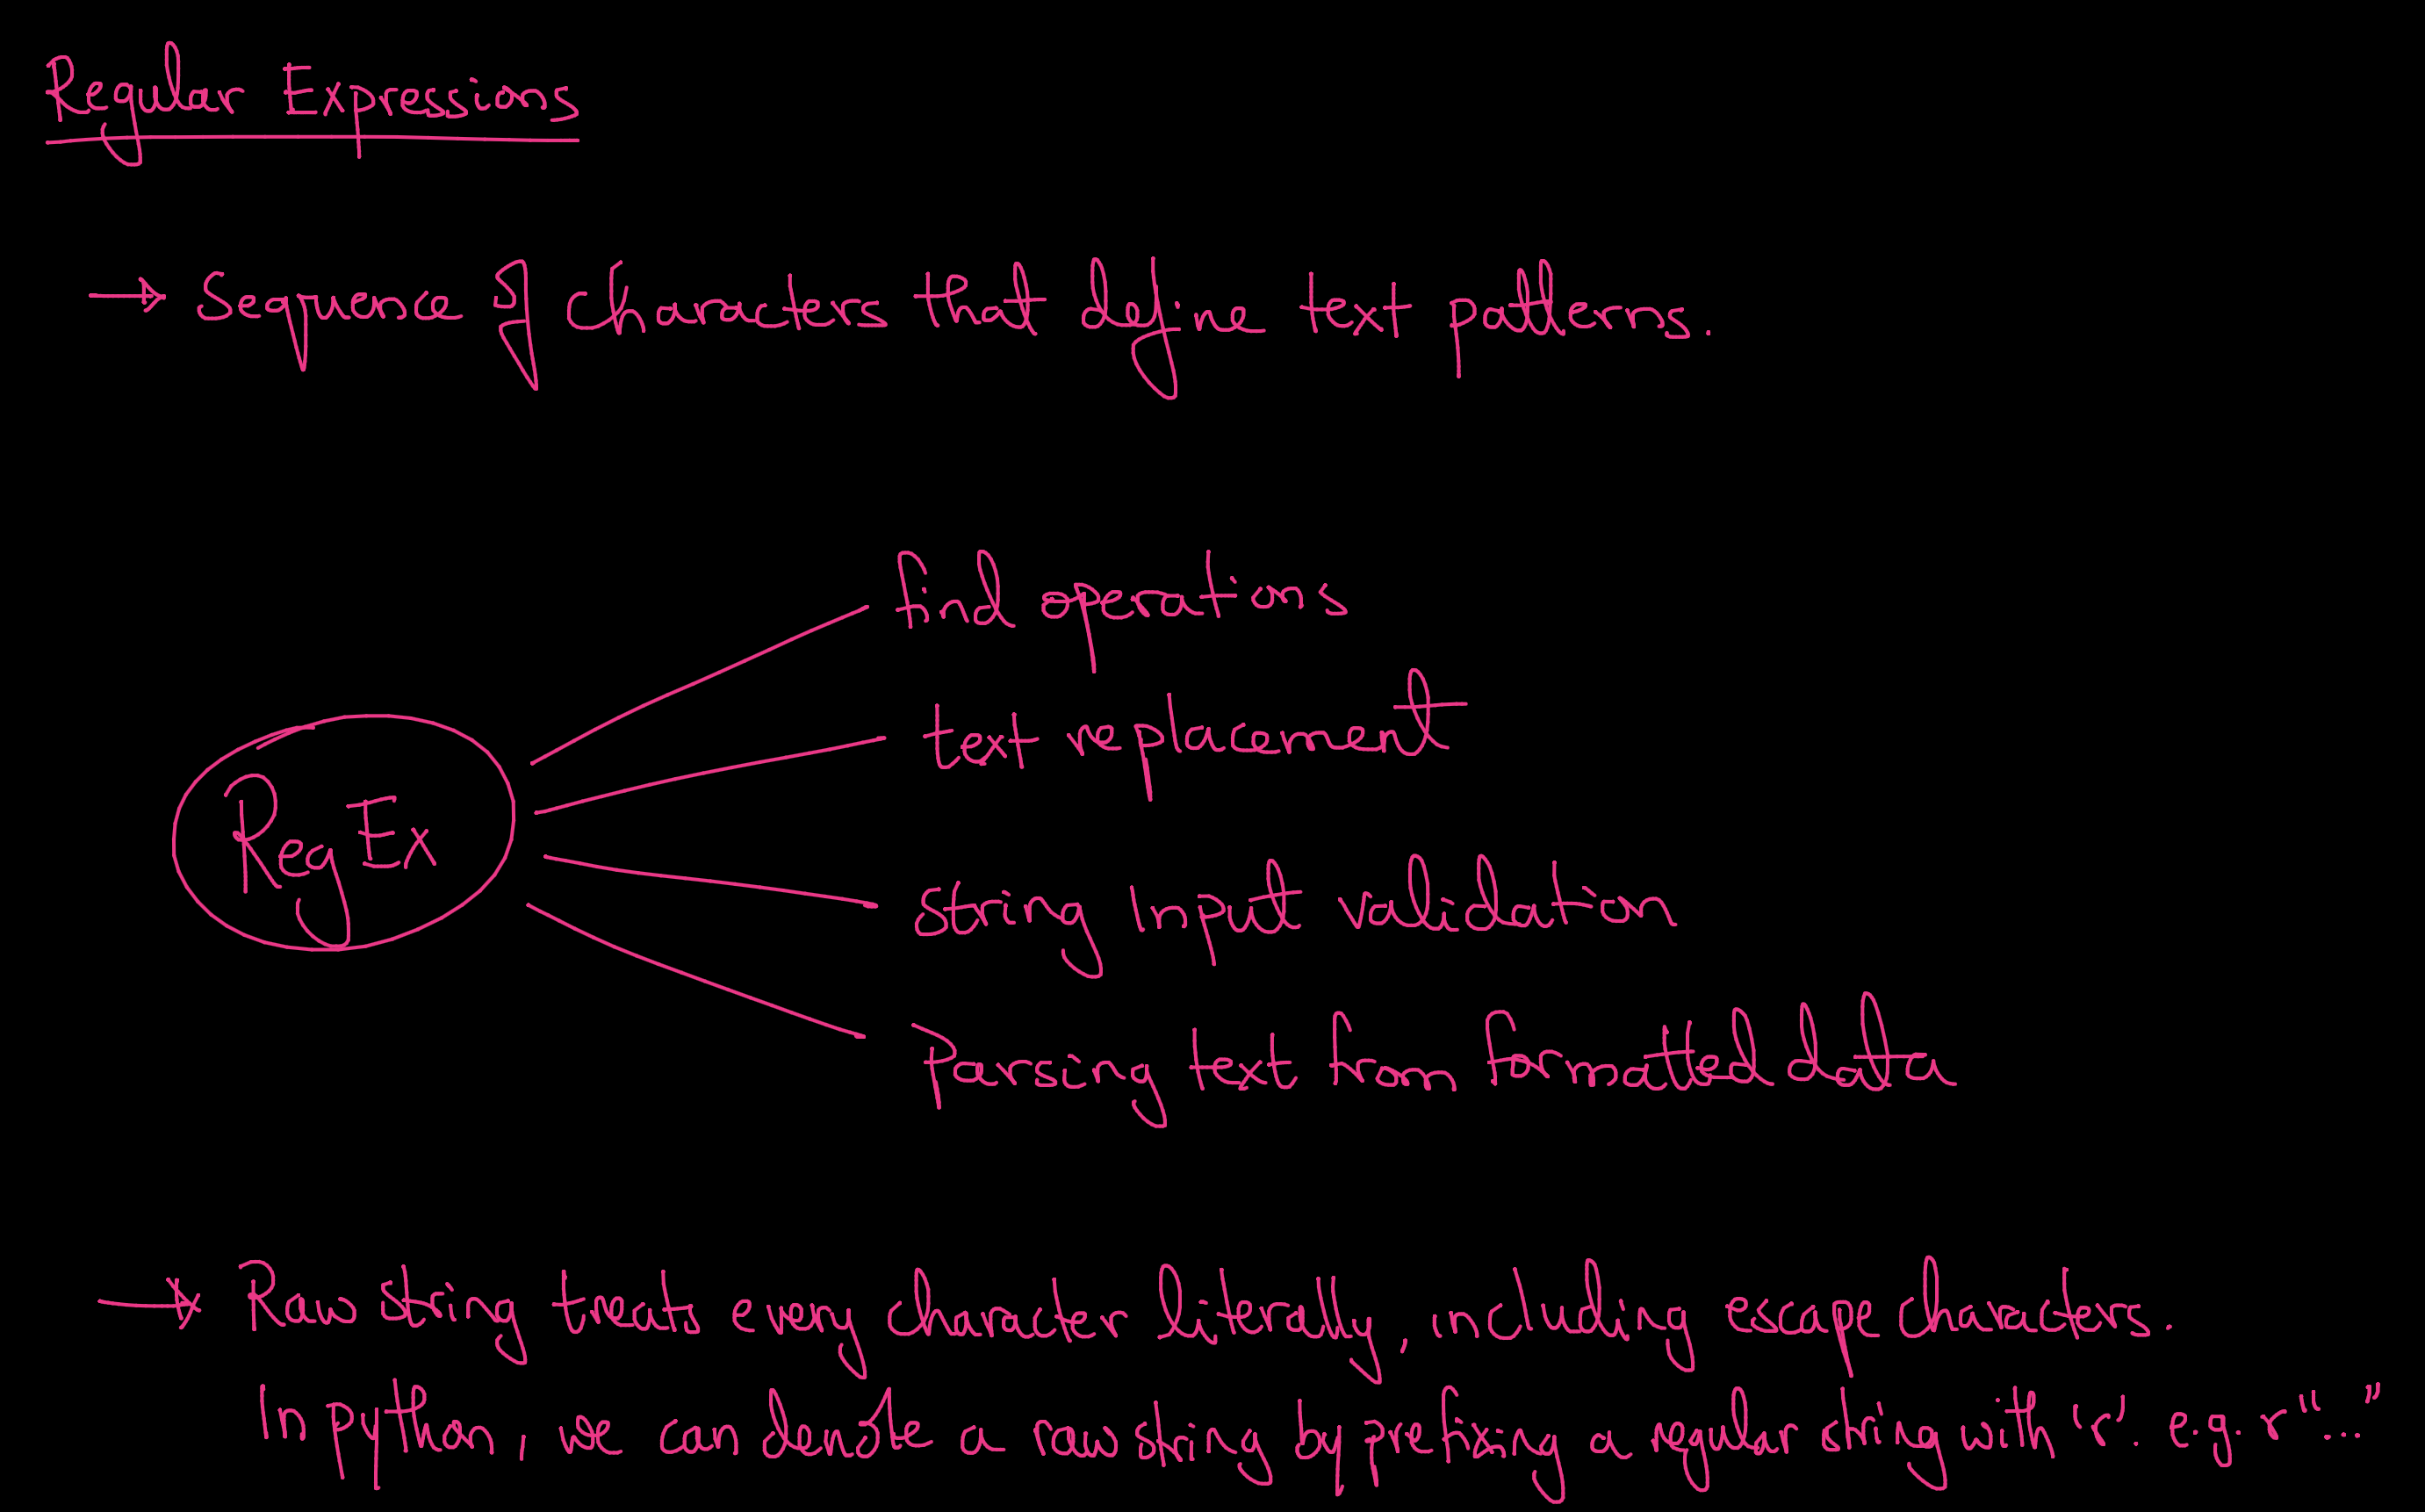 Regular Expressions
→ Sequence of characters that define text patterns.
find operations
text replacement
RegEx
String Input validation
Parsing text from formatted data
→ Raw string treats every character literally, including escape characters.
In python, we can denote a raw string by prefixing a regular string with 'r'. e.g. r"..."